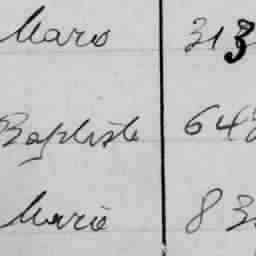 Mars 313
Baptiste 648
Marie 83